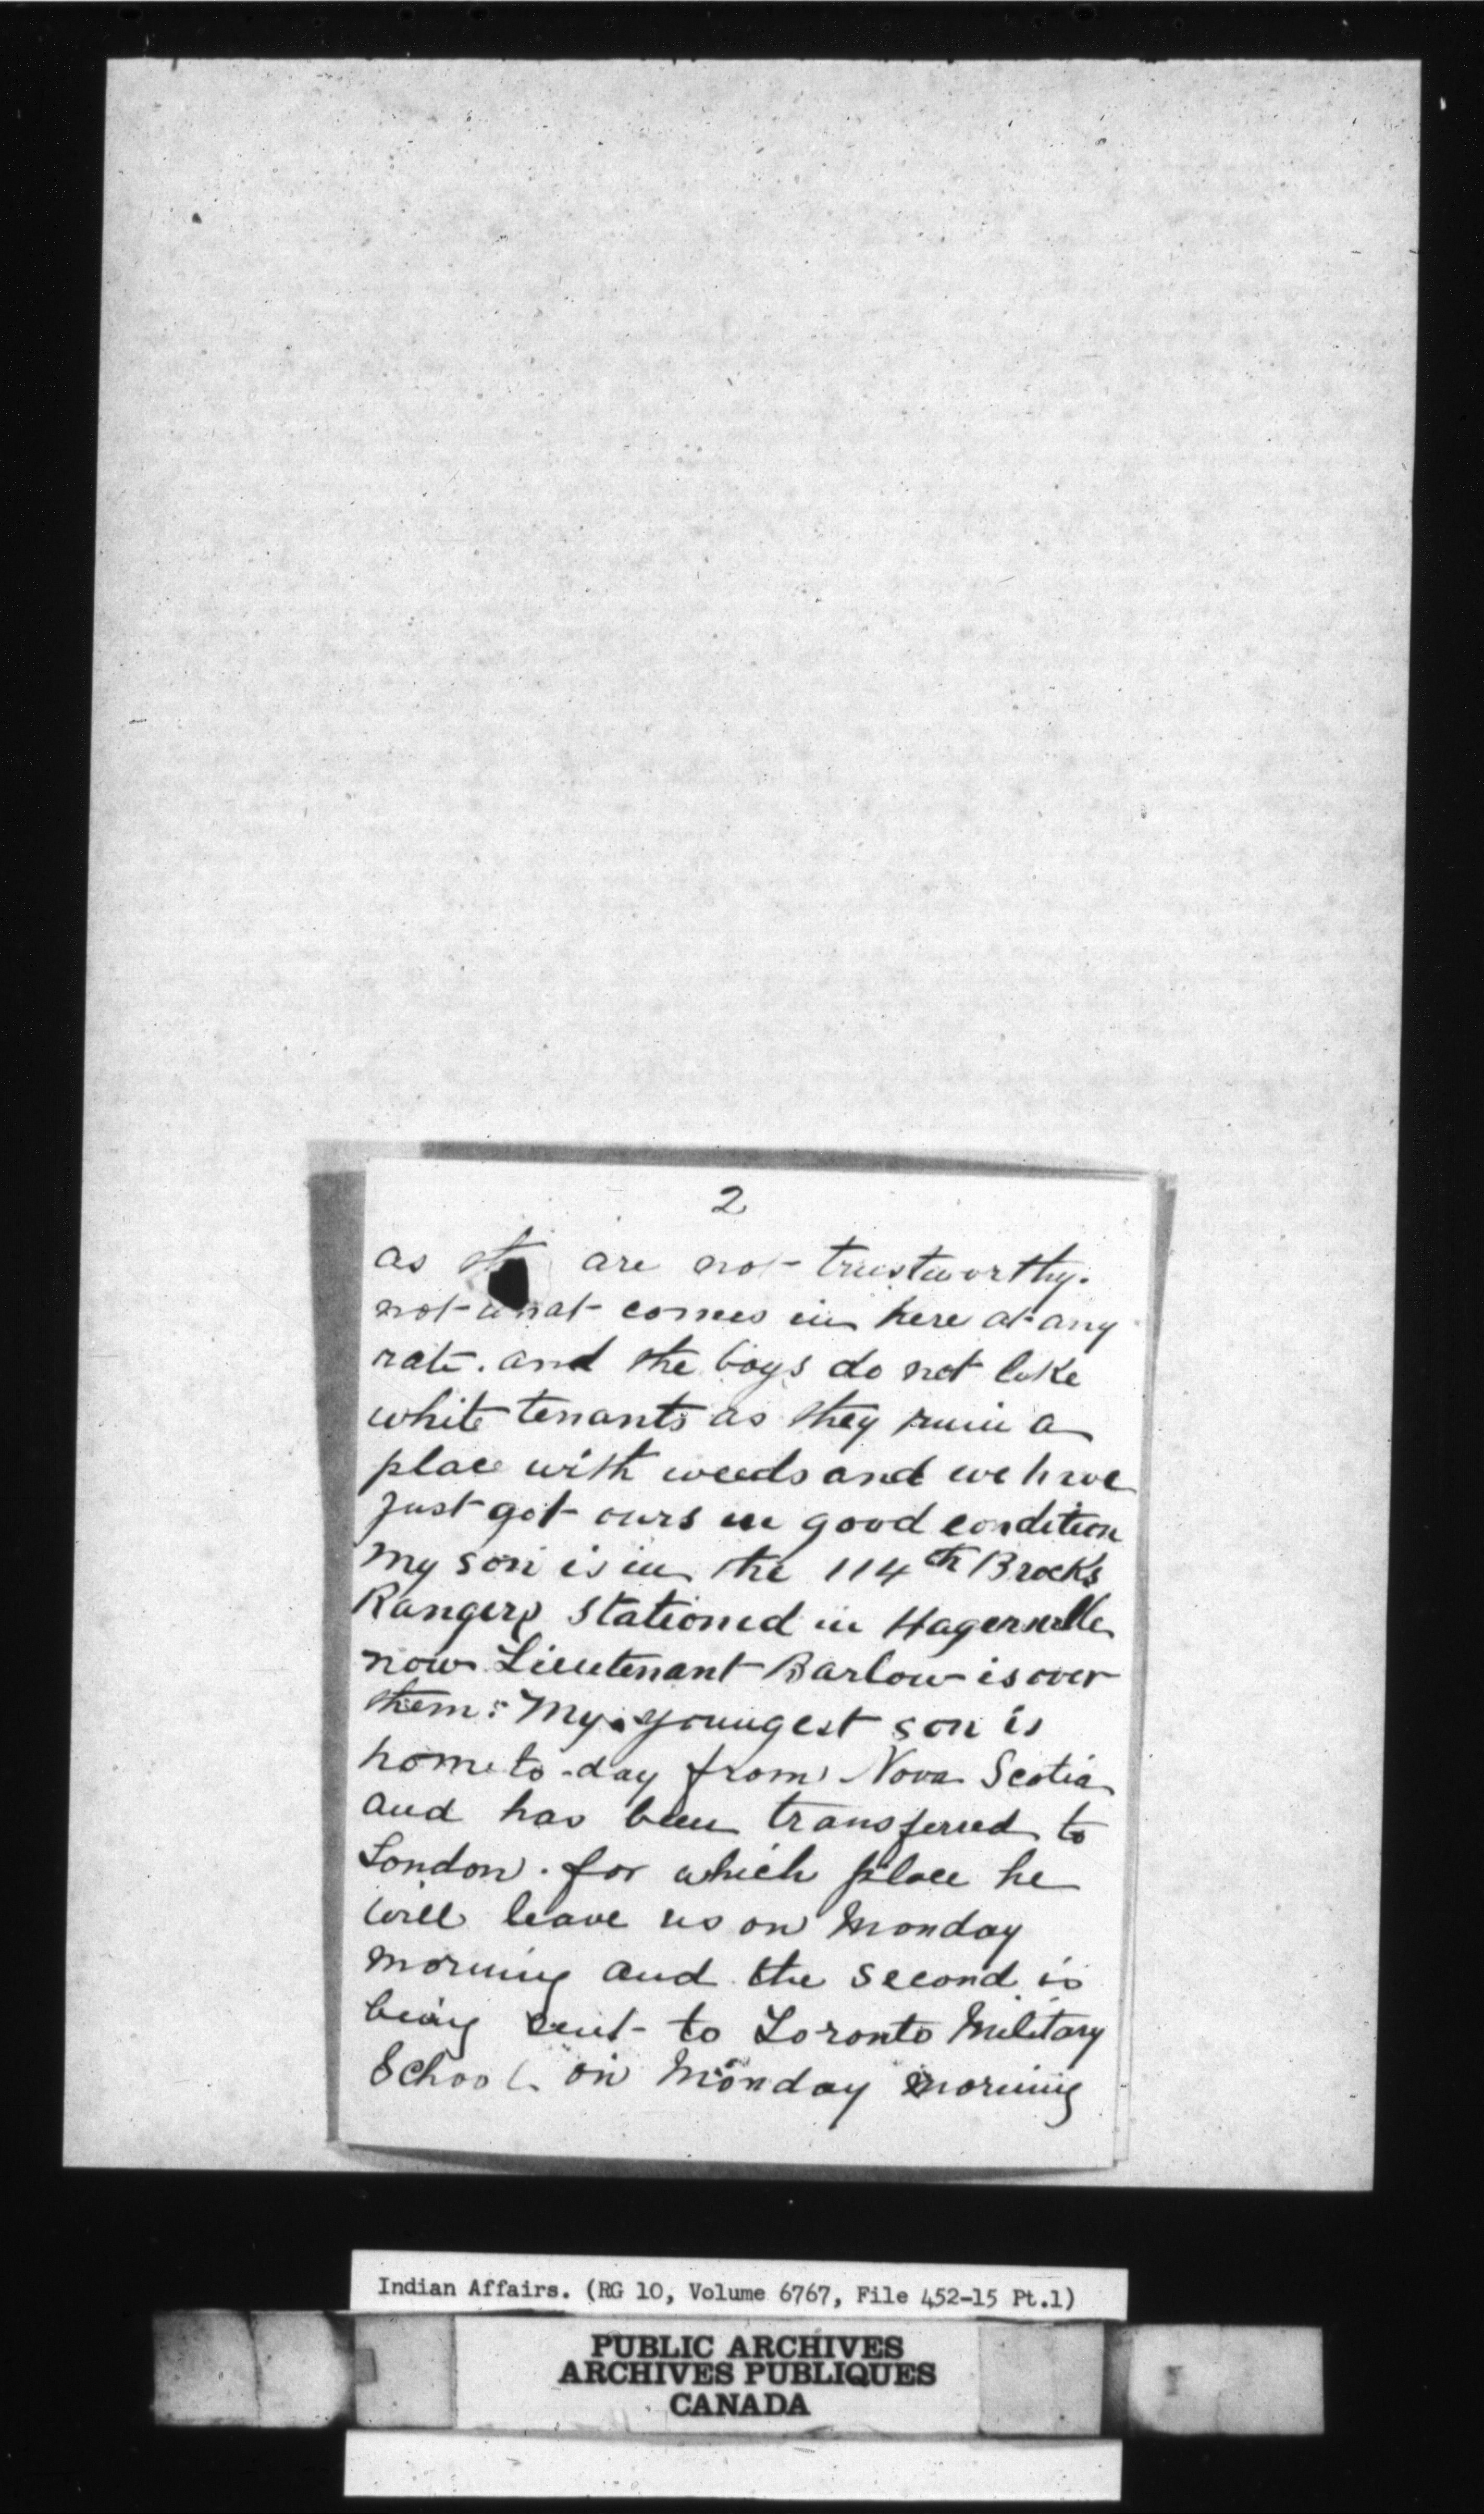 2
as are not trustworthy.
not what comes in here at any
rate. and the boys do not like
white tenants as they ruin a
place with weeds and we have
just got ours in good condition
My son is in the 114th Brocks
Rangers stationed in Hagersville
now Lieutenant Barlow is over
them. My youngest son is
home to-day from Nova Scotia
and has been transferred to
London. for which place he
will leave us on Monday
morning and the second is
being sent to Toronto Military
School. on Monday morning
Indian Affairs. (RG 10, Volume 6767, File 452-15 Pt.1)
PUBLIC ARCHIVES
ARCHIVES PUBLIQUES
CANADA